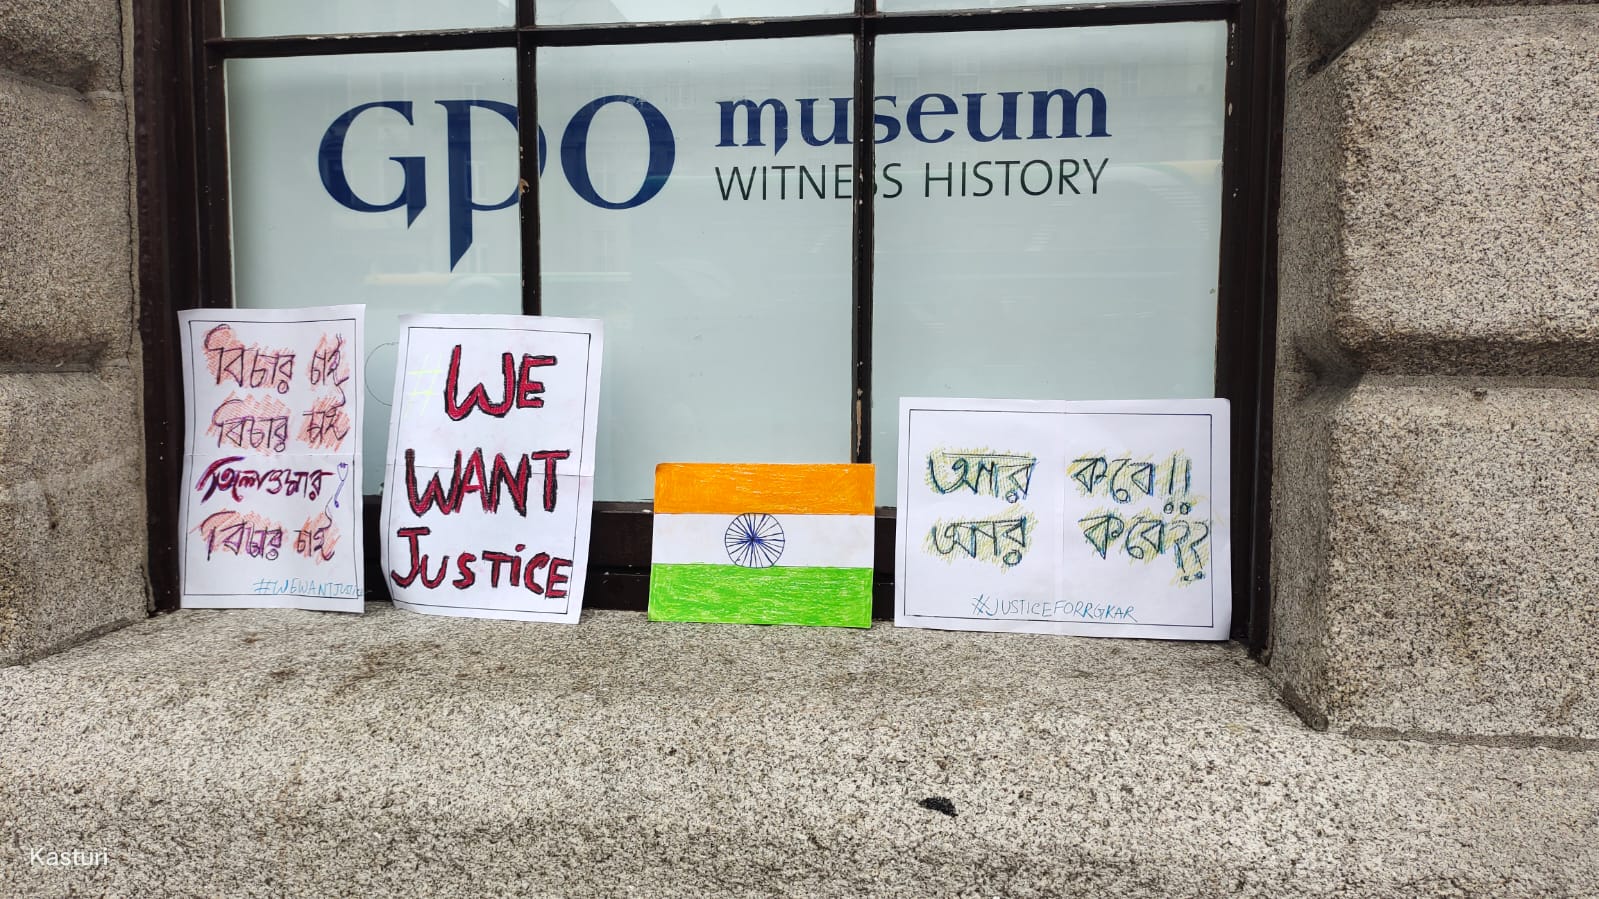 GPO museum
WITNESS HISTORY
বিচার চাই
বিচার চাই
তিলোত্তমার
বিচার চাই
#WEWANTJUSTICE
#WE
WANT
JUSTICE
আর কবে!!
আর কবে??
#JUSTICEFORRGKAR
Kasturi